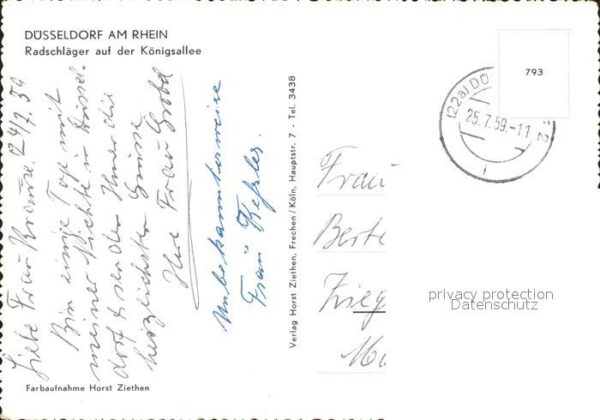 DÜSSELDORF AM RHEIN
Radschläger auf der Königsallee
Liebe Frau Krause. 24/7.59
Bin einige Tage mit
meiner Nichte in Düssel-
dorf & sende Ihnen die
herzlichsten Grüsse
Ihre Frau Grobel
Unbekannterweise
Frau Keßler.
Verlag Horst Ziethen, Frechen/Köln, Hauptstr. 7 - Tel. 3438
793
(22a) DÜ
25.7.59.-11
Frau
Berte
Zieg
privacy protection
Datenschutz
Farbaufnahme Horst Ziethen